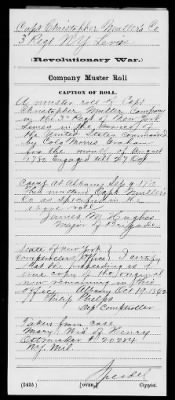 Capt. Christopher Mutler's Co.
3 Regt N.Y. Levies
(Revolutionary War.)
Company Muster Roll
CAPTION OF ROLL.
A muster roll of Capt
Christopher Mutler Company
in the 3d Regt of New York
Levies in the service of
the United States Commanded
by Colo Morris Graham
for the month of August
1780 Engaged till
Camp at Albany Sep 9 1780
then mustered Capt
Co as specified in the
above roll
James M Hughes
Major of Brigade
State of New York
Comptrollers Office I certify
that the preceding is a
true copy of the original
now remaining in this
office Albany Oct 19 1840
Philip Phelps
Dep Comptroller
Taken from case
Mary Wid of Henry
N.Y. Mil.
(545) (OVER) Copyist.